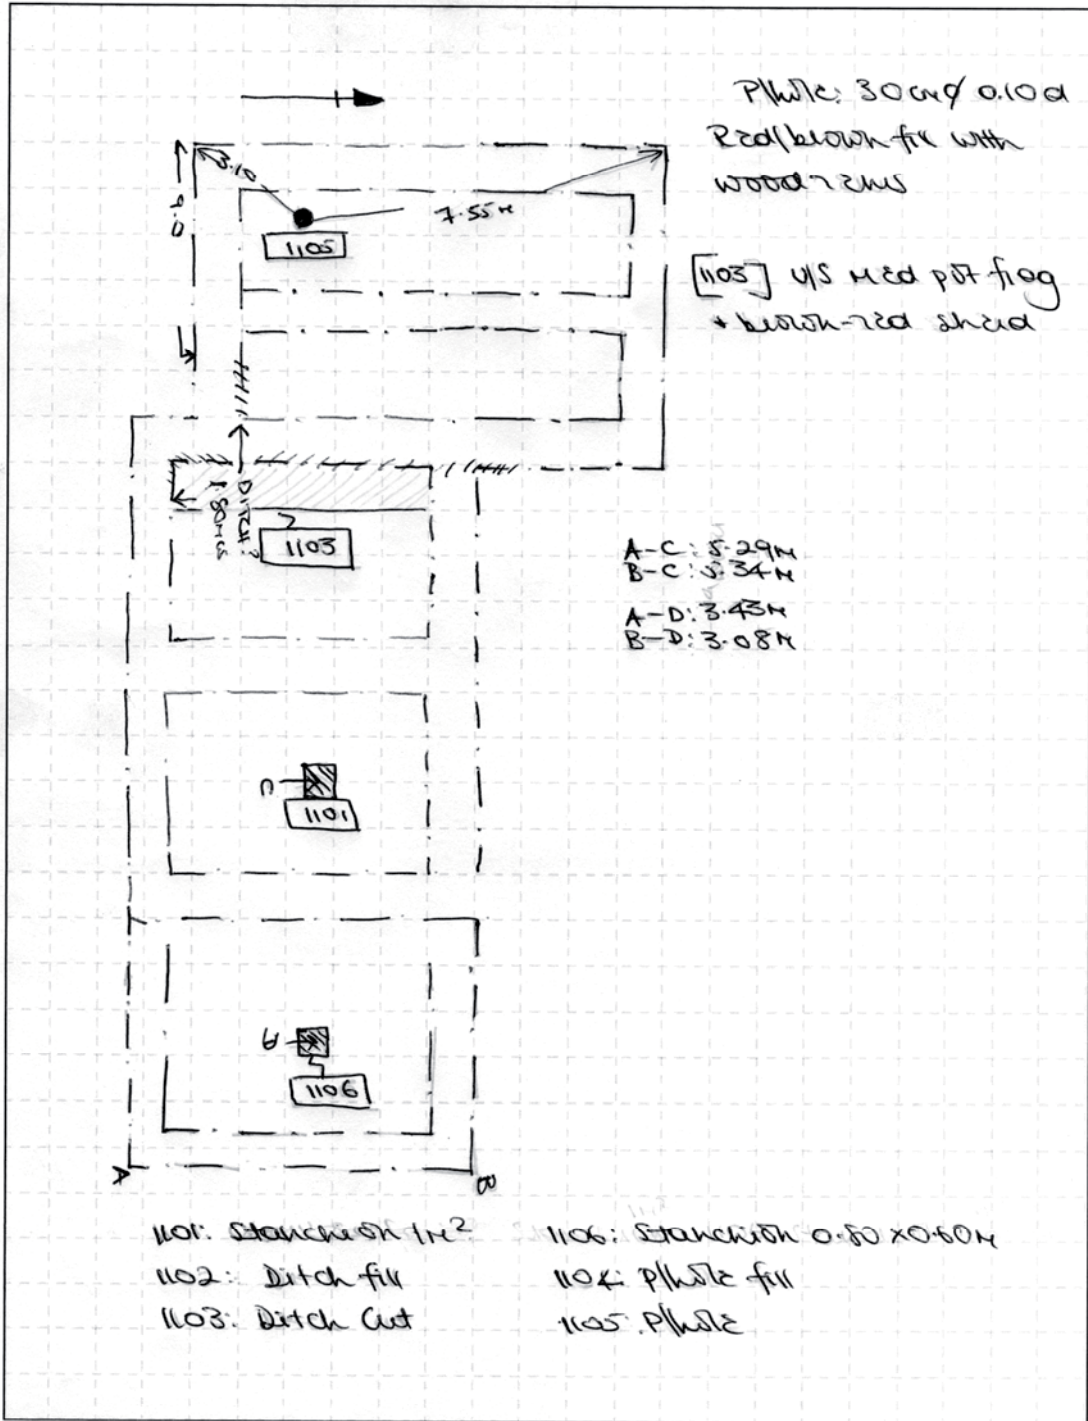 P/hole: 30cmø 0.10d
Red/brown fill with
wood rems
3.10
9.0
7.55M
1105
[1103] U/S Med pot frag
+ brown-red sherd
DITCH?
1.80M
1103
A-C: 5.29M
B-C: 5.34M
A-D: 3.43M
B-D: 3.08M
C
1101
1106
A
B
1101: Stanchion 1M²
1102: Ditch fill
1103: Ditch Cut
1106: Stanchion 0.80 x 0.60M
1104: P/hole fill
1105: P/hole